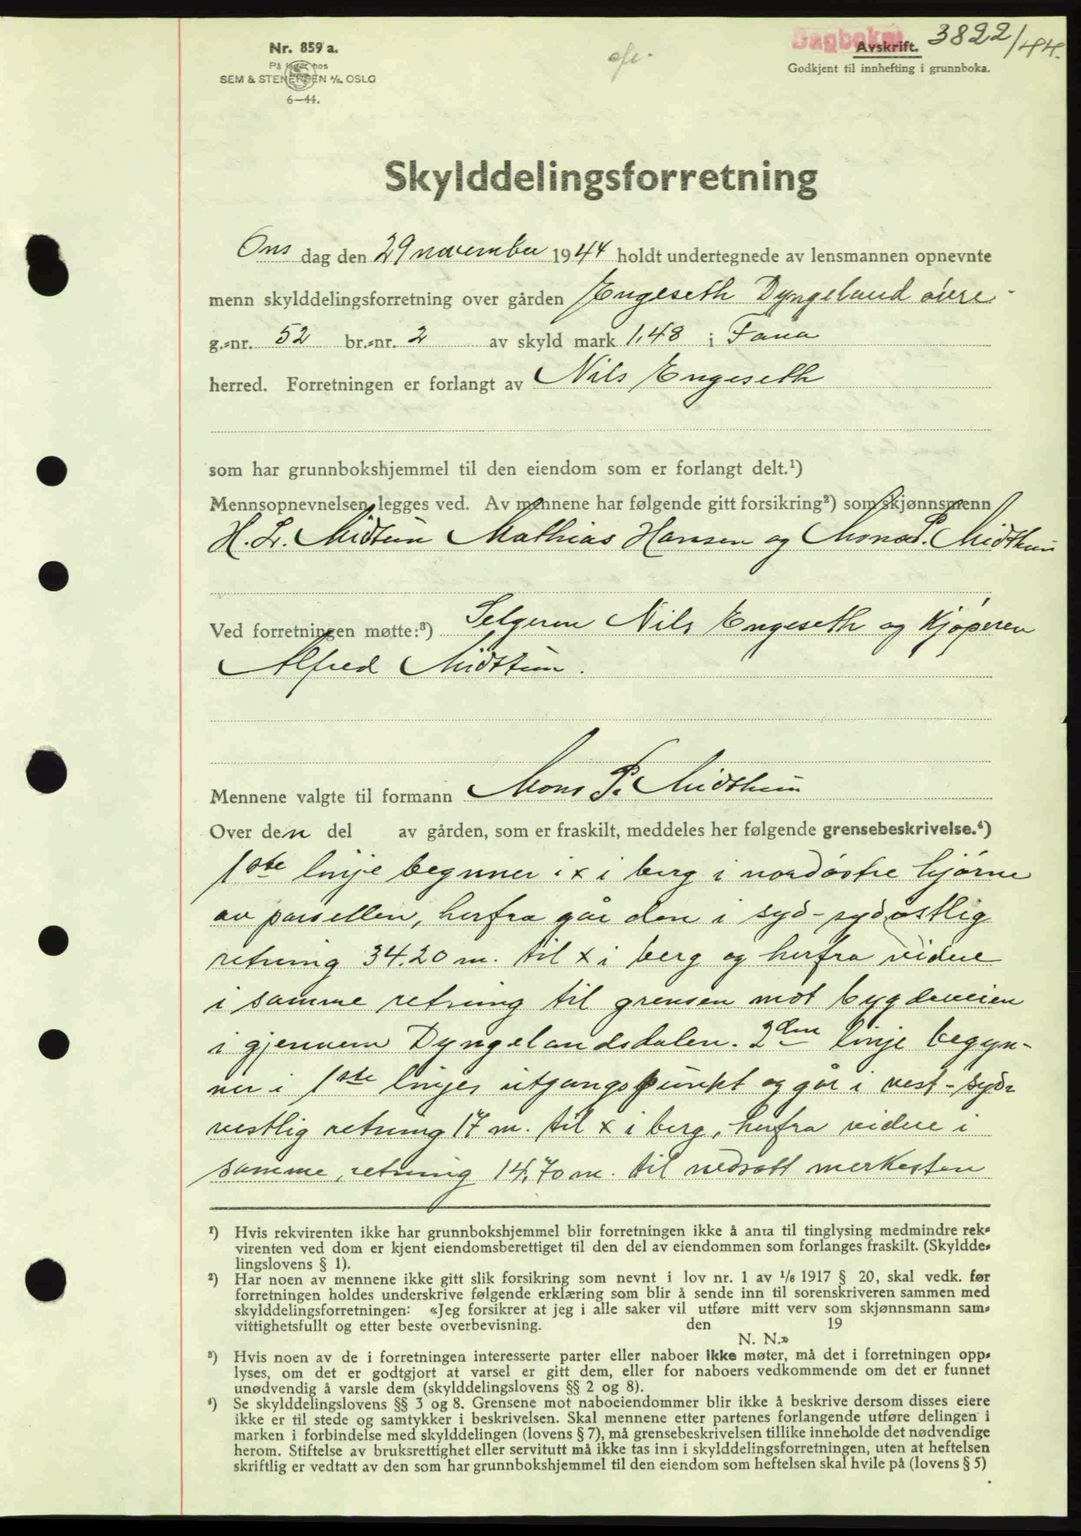 Nr. 859 a.
På lager hos
SEM & STENERSEN A/S. OSLO
6—44.
Dagboknr 3822/44.
Avskrift.
Godkjent til innhefting i grunnboka.
Skylddelingsforretning
Ons dag den 29 november 1944 holdt undertegnede av lensmannen opnevnte
menn skylddelingsforretning over gården Engeseth Dyngeland øvre
g.-nr. 52 br.-nr. 2 av skyld mark 1,48 i Fana
herred. Forretningen er forlangt av Nils Engeseth
som har grunnbokshjemmel til den eiendom som er forlangt delt.¹)
Mennsopnevnelsen legges ved. Av mennene har følgende gitt forsikring²) som skjønnsmenn
H. L. Midtun Mathias Hansen og Mons P. Midthun
Ved forretningen møtte:³) Selgeren Nils Engeseth og Kjøperen
Alfred Midttun.
Mennene valgte til formann Mons P. Midthun
Over den del av gården, som er fraskilt, meddeles her følgende grensebeskrivelse.⁴)
1ste linje begynner i x i berg i nordøstre hjørne
av parsellen, herfra går den i syd-sydøstlig
retning 34.20 m. til x i berg og herfra videre
i samme retning til grensen mot bygdeveien
i gjennem Dyngelandsdalen. 2den linje begyn-
ner i 1ste linjes utgangspunkt og går i vest-syd-
vestlig retning 17 m. til x i berg, herfra videre i
samme retning 14,70 m. til nedsatt merkesten
¹) Hvis rekvirenten ikke har grunnbokshjemmel blir forretningen ikke å anta til tinglysing medmindre rek-
virenten ved dom er kjent eiendomsberettiget til den del av eiendommen som forlanges fraskilt. (Skyldde-
lingslovens § 1).
²) Har noen av mennene ikke gitt slik forsikring som nevnt i lov nr. 1 av 1/6 1917 § 20, skal vedk. før
forretningen holdes underskrive følgende erklæring som blir å sende inn til sorenskriveren sammen med
skylddelingsforretningen: «Jeg forsikrer at jeg i alle saker vil utføre mitt verv som skjønnsmann sam-
vittighetsfullt og etter beste overbevisning. den 19
N. N.»
³) Hvis noen av de i forretningen interesserte parter eller naboer ikke møter, må det i forretningen opp-
lyses, om det er godtgjort at varsel er gitt dem, eller for naboers vedkommende om det er funnet
unødvendig å varsle dem (skylddelingslovens §§ 2 og 8).
⁴) Se skylddelingslovens §§ 3 og 8. Grensene mot naboeiendommer blir ikke å beskrive dersom disses eiere
ikke er til stede og samtykker i beskrivelsen. Skal mennene etter partenes forlangende utføre delingen i
marken i forbindelse med skylddelingen (lovens § 7), må grensebeskrivelsen tillike inneholde det nødvendige
herom. Stiftelse av bruksrettighet eller servitutt må ikke tas inn i skylddelingsforretningen, uten at heftelsen
skriftlig er vedtatt av den som har grunnbokshjemmel til den eiendom som heftelsen skal hvile på (lovens § 5)